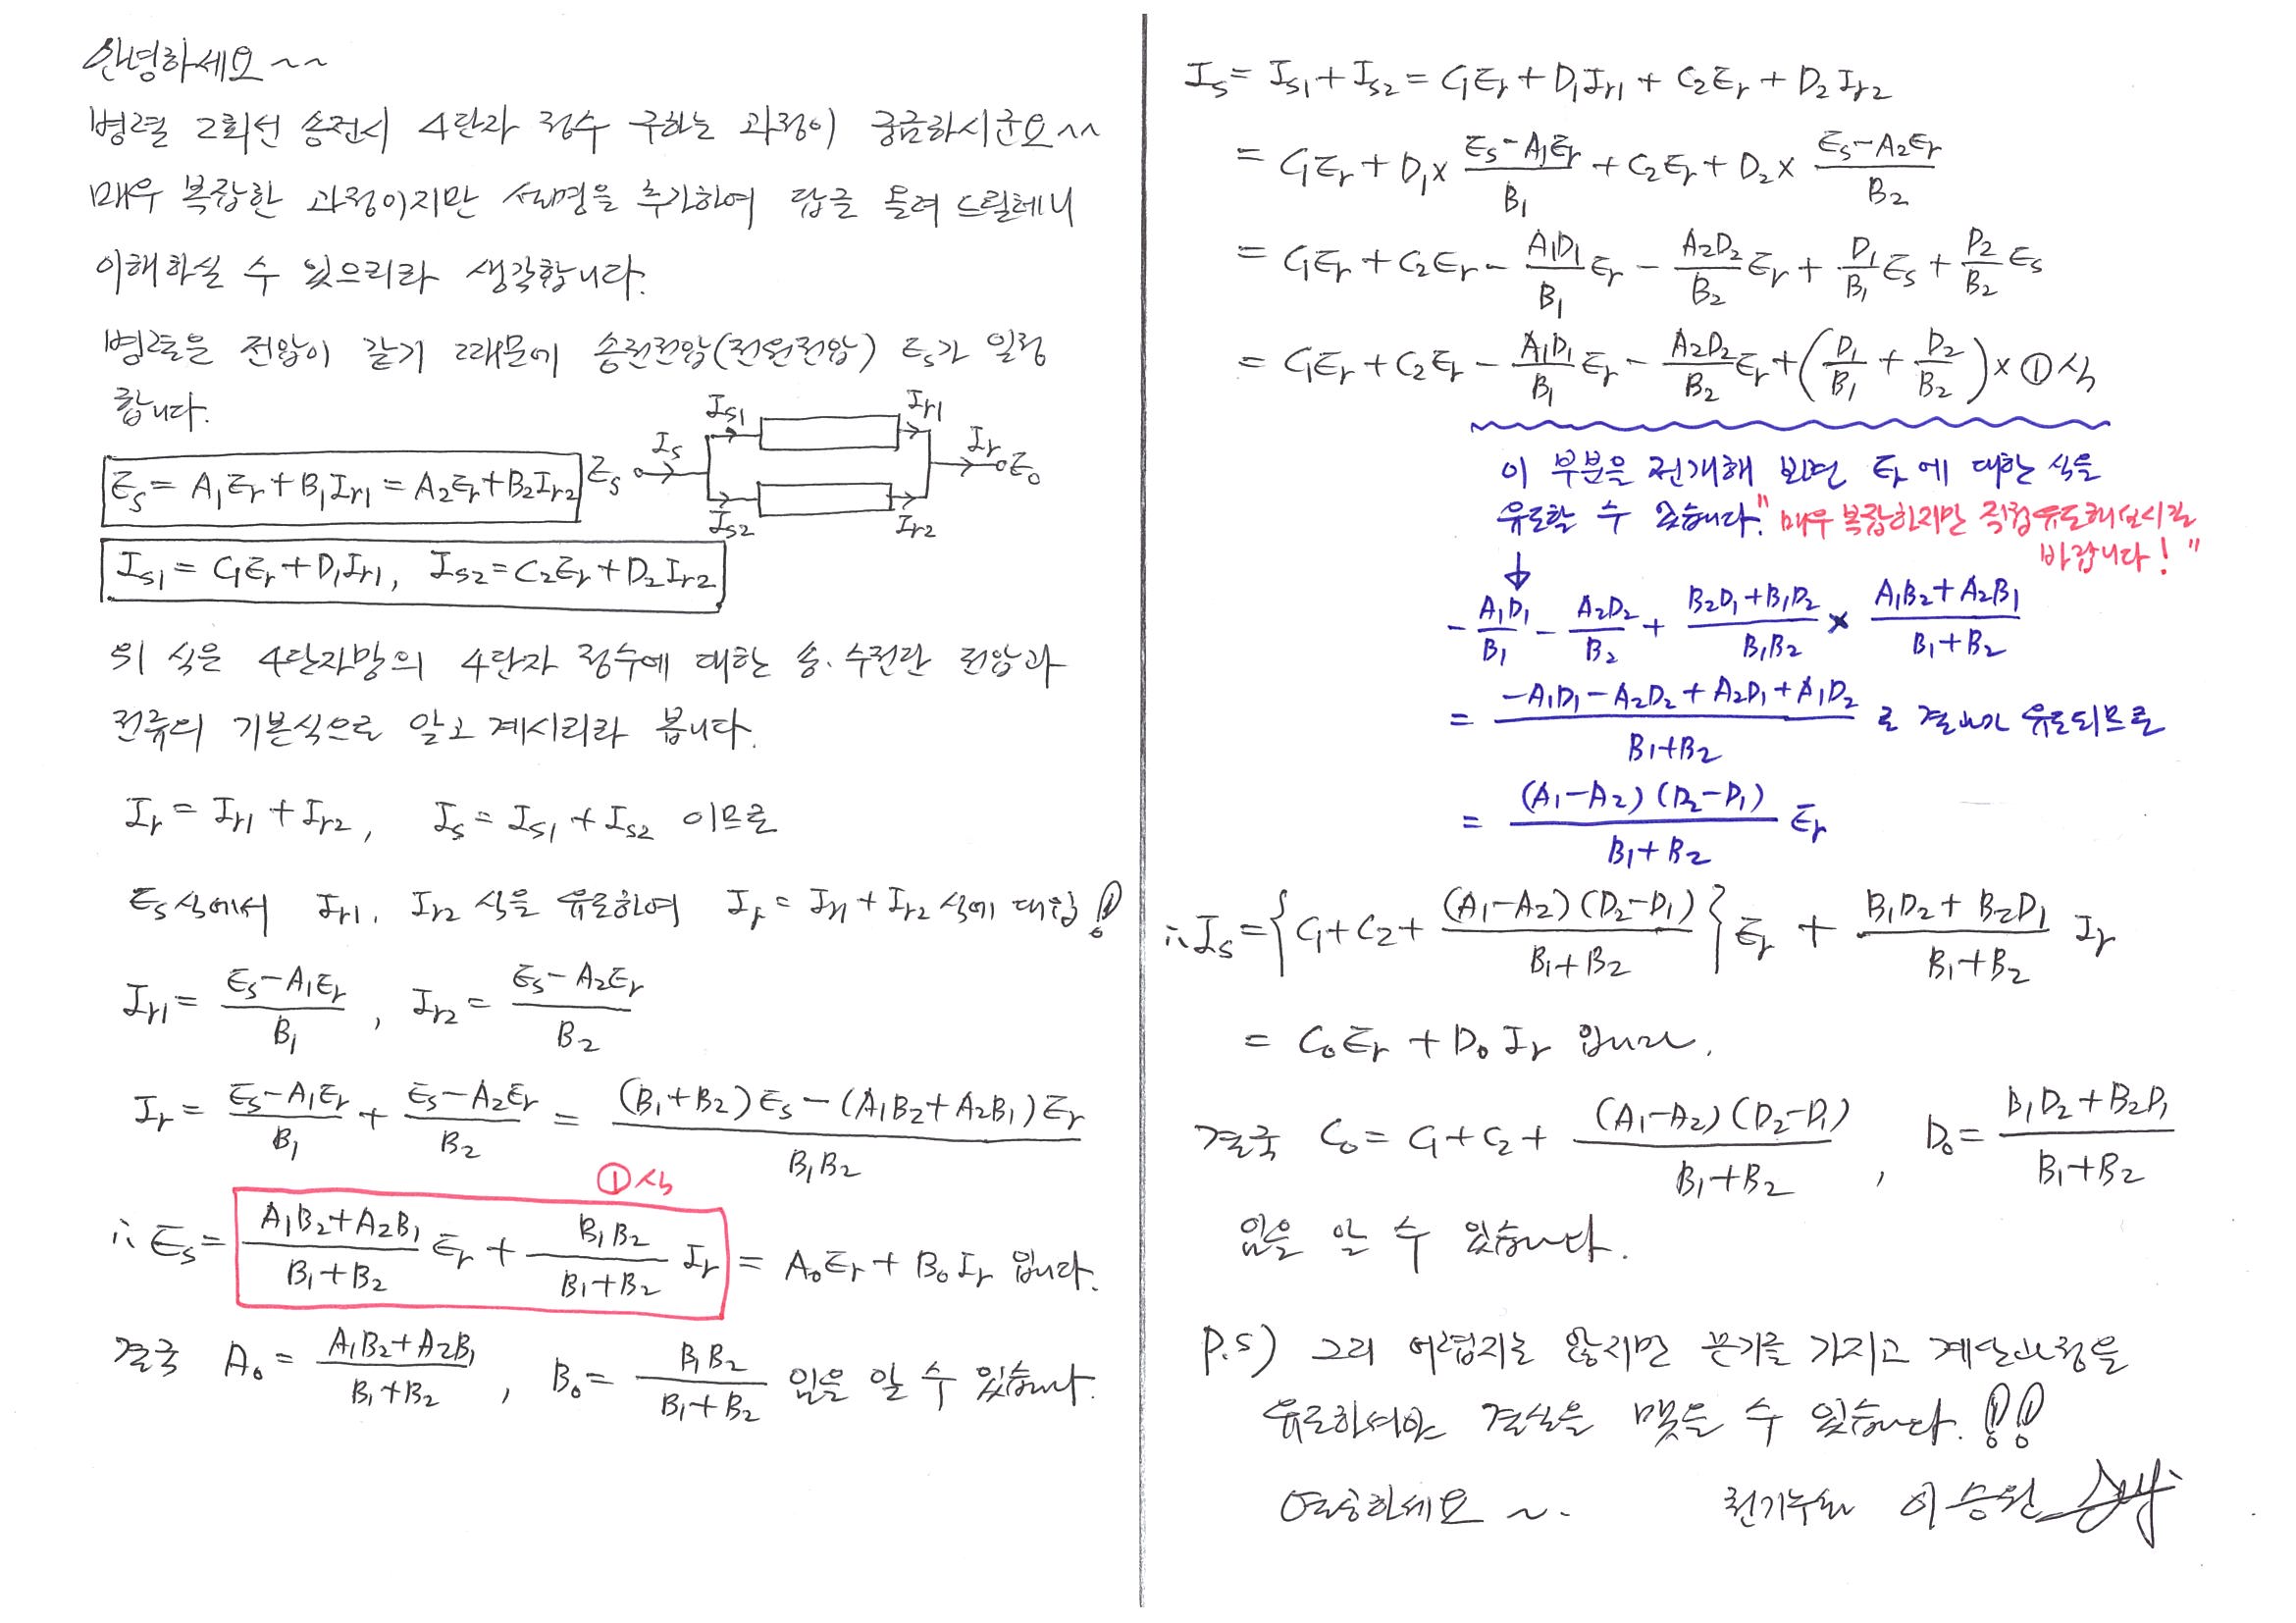 안녕하세요~~
병렬 2회선 송전시 4단자 정수 구하는 과정이 궁금하시군요^^
매우 복잡한 과정이지만 설명을 추가하여 답글 올려 드릴테니
이해하실 수 있으리라 생각합니다.
병렬은 전압이 같기 때문에 송전전압(전원전압) Es가 일정
합니다.
Is Is1 Ir1 Ir
Es Eo
Is2 Ir2
Es = A1Er + B1Ir1 = A2Er + B2Ir2
Is1 = C1Er + D1Ir1, Is2 = C2Er + D2Ir2
위 식은 4단자망의 4단자 정수에 대한 송.수전단 전압과
전류의 기본식으로 알고 계시리라 봅니다.
Ir = Ir1 + Ir2, Is = Is1 + Is2 이므로
Es식에서 Ir1, Ir2 식을 유도하여 Ir = Ir1 + Ir2 식에 대입!
Ir1 = (Es-A1Er)/B1, Ir2 = (Es-A2Er)/B2
Ir = (Es-A1Er)/B1 + (Es-A2Er)/B2 = ((B1+B2)Es-(A1B2+A2B1)Er)/(B1B2)
①식
∴ Es = (A1B2+A2B1)/(B1+B2) Er + (B1B2)/(B1+B2) Ir = AoEr + BoIr 입니다.
결국 Ao = (A1B2+A2B1)/(B1+B2), Bo = (B1B2)/(B1+B2) 임을 알 수 있습니다.
Is = Is1 + Is2 = C1Er + D1Ir1 + C2Er + D2Ir2
= C1Er + D1 × (Es-A1Er)/B1 + C2Er + D2 × (Es-A2Er)/B2
= C1Er + C2Er - (A1D1)/B1 Er - (A2D2)/B2 Er + D1/B1 Es + D2/B2 Es
= C1Er + C2Er - (A1D1)/B1 Er - (A2D2)/B2 Er + (D1/B1 + D2/B2) × ①식
이 부분을 전개해 보면 Er에 대한 식을
유도할 수 있습니다. "매우 복잡하지만 직접 유도해보시길
바랍니다!"
↓
- (A1D1)/B1 - (A2D2)/B2 + (B2D1+B1D2)/(B1B2) × (A1B2+A2B1)/(B1+B2)
= (-A1D1-A2D2+A2D1+A1D2)/(B1+B2) 로 결과가 유도되므로
= ((A1-A2)(D2-D1))/(B1+B2) Er
∴ Is = {C1+C2+((A1-A2)(D2-D1))/(B1+B2)} Er + (B1D2+B2D1)/(B1+B2) Ir
= CoEr + DoIr 입니다.
결국 Co = C1+C2+((A1-A2)(D2-D1))/(B1+B2), Do = (B1D2+B2D1)/(B1+B2)
임을 알 수 있습니다.
P.S) 그리 어렵지는 않지만 끈기를 가지고 계산과정을
유도하셔야 결실을 맺을 수 있습니다.!!
열공하세요~. 이승원